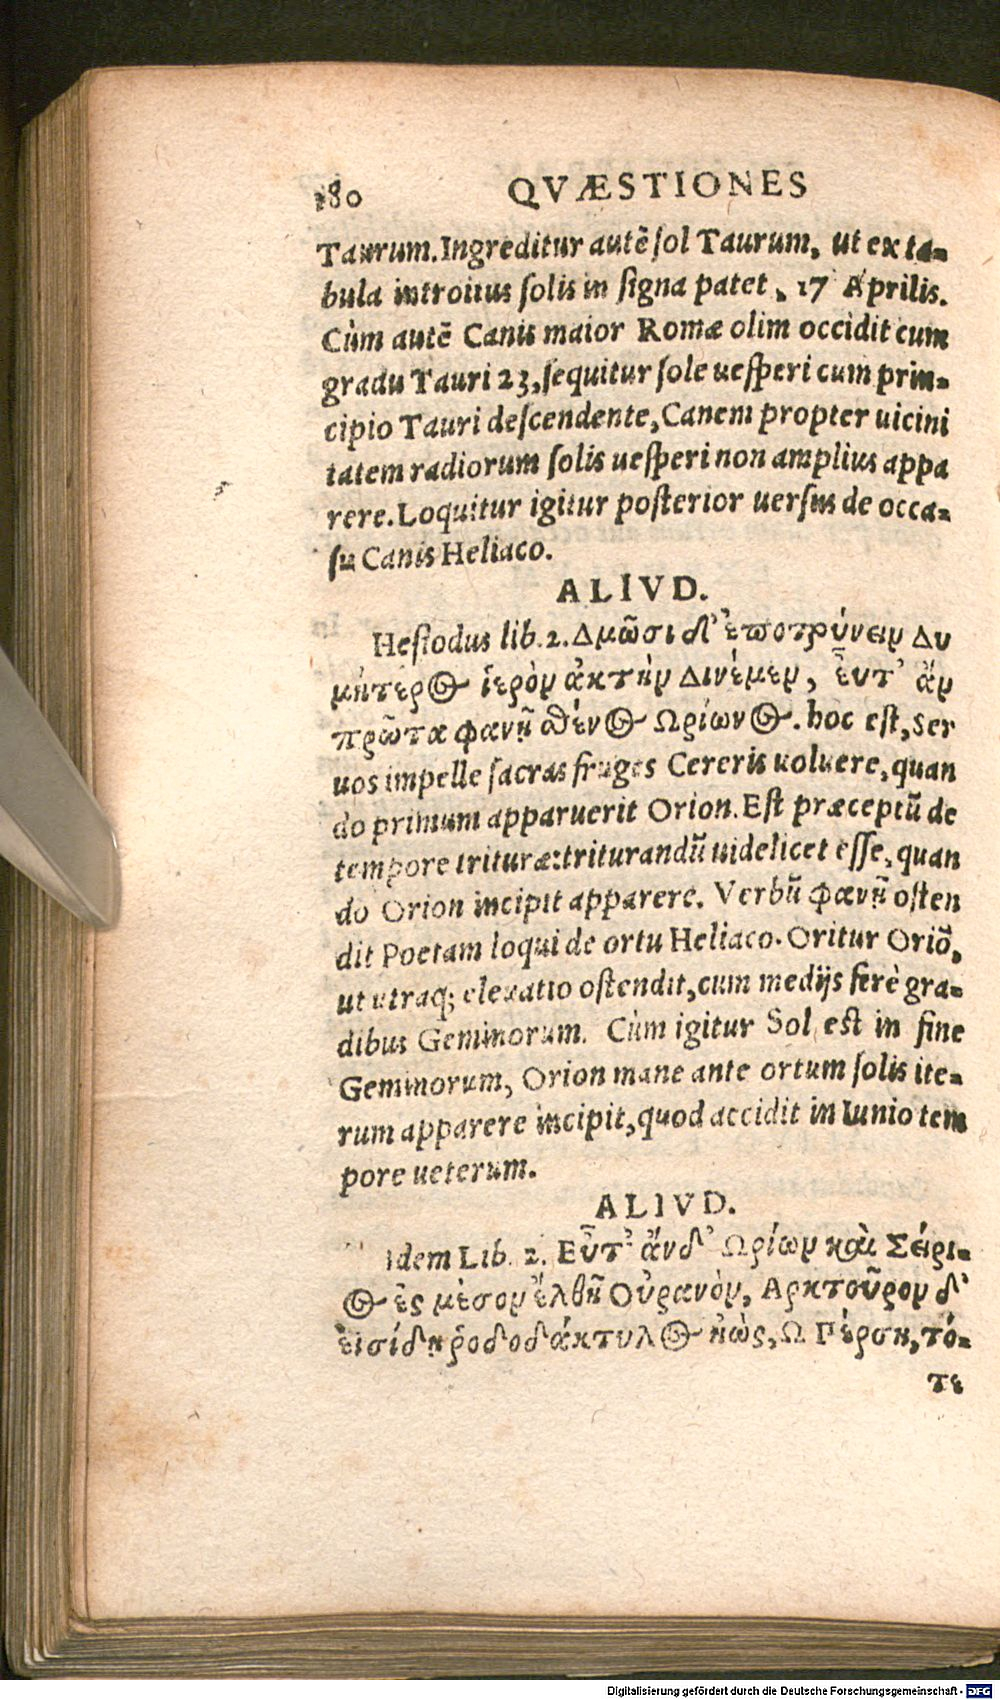 180 QVÆSTIONES
Taurum. Ingreditur autẽ sol Taurum, ut ex ta-
bula introitus solis in signa patet, 17 Aprilis.
Cùm autẽ Canis maior Romæ olim occidit cum
gradu Tauri 23, sequitur sole uesperi cum prin-
cipio Tauri descendente, Canem propter uicini
tatem radiorum solis uesperi non amplius appa
rere. Loquitur igitur posterior uersus de occa-
su Canis Heliaco.
ALIVD.
Hesiodus lib. 2. Δμῶσι δ' ἐποτρύνειν Δυ
μήτερος ἱερὸν ἀκτὴν Δινέμεν, ἐῦτ' ἂν
πρῶτα φανῇ σθένος Ωρίωνος. hoc est, Ser
uos impelle sacras fruges Cereris uoluere, quan
do primum apparuerit Orion. Est præceptũ de
tempore trituræ: triturandũ uidelicet esse, quan
do Orion incipit apparere. Verbũ φανῇ osten
dit Poetam loqui de ortu Heliaco. Oritur Oriõ,
ut utraq; eleuatio ostendit, cum medijs ferè gra-
dibus Geminorum. Cùm igitur Sol est in fine
Geminorum, Orion mane ante ortum solis ite-
rum apparere incipit, quod accidit in Iunio tem
pore ueterum.
ALIVD.
Idem Lib. 2. Εῦτ' ἄν δ' Ωρίων καὶ Σείρι-
ος ἐς μέσον ἔλθῃ Οὐρανὸν, Αρκτοῦρον δ'
εἰσίδῃ ῥοδοδάκτυλος ἠὼς, Ω Πέρση, τό-
τε
Digitalisierung gefördert durch die Deutsche Forschungsgemeinschaft - DFG